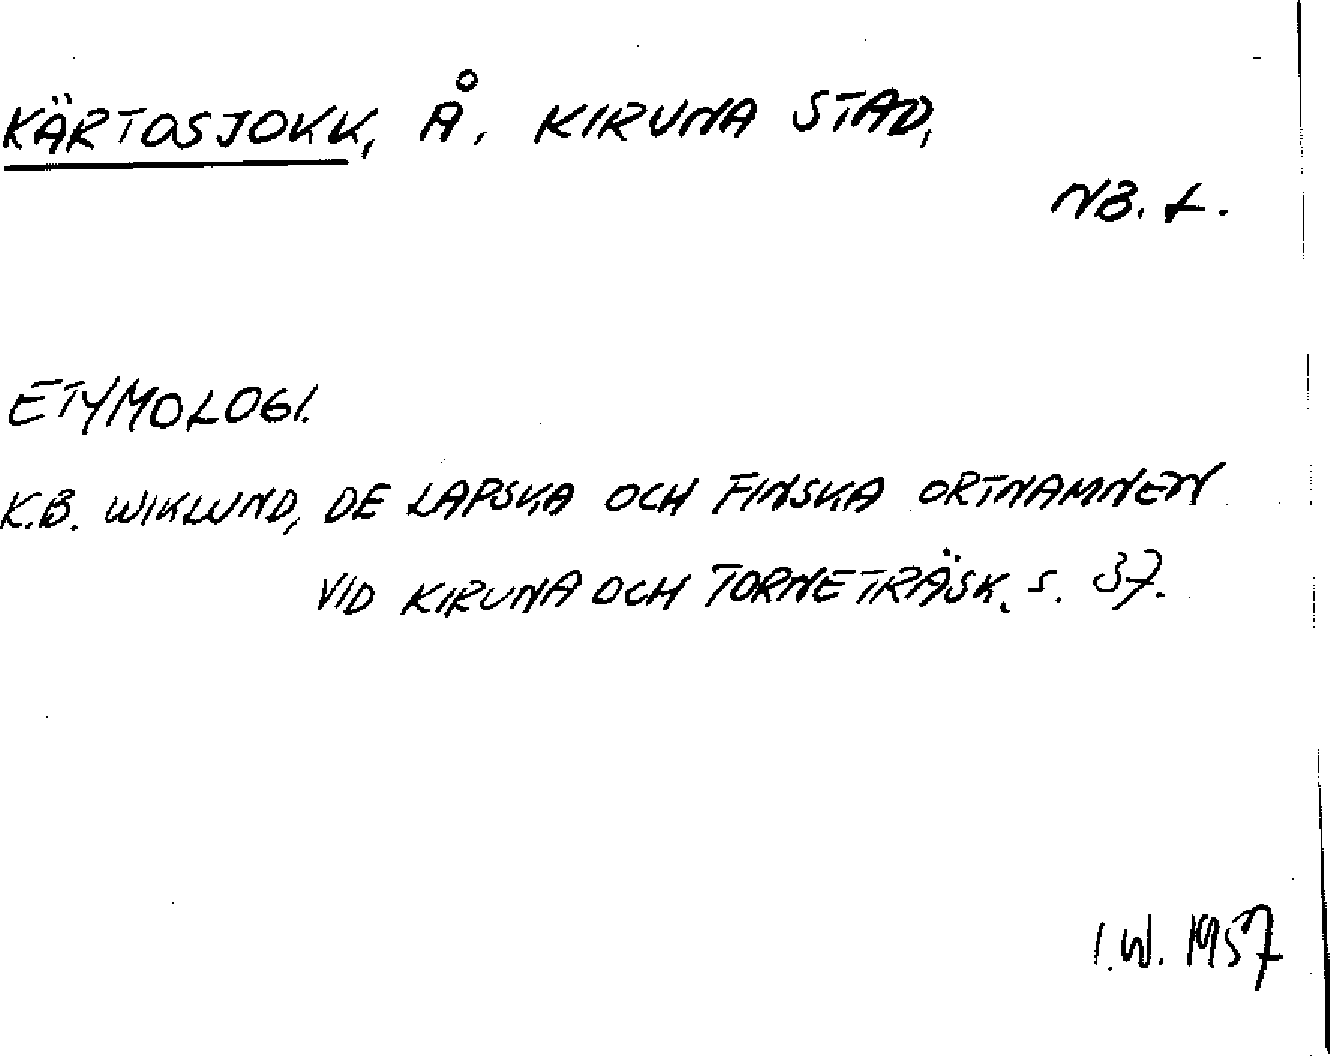 KÄRTOSJOKK, Å, KIRUNA STAD,
NB. L.
ETYMOLOGI.
K.B. WIKLUND, DE LAPSKA OCH FINSKA ORTNAMNEN
VID KIRUNA OCH TORNETRÄSK, S. 37.
I.W. 1957